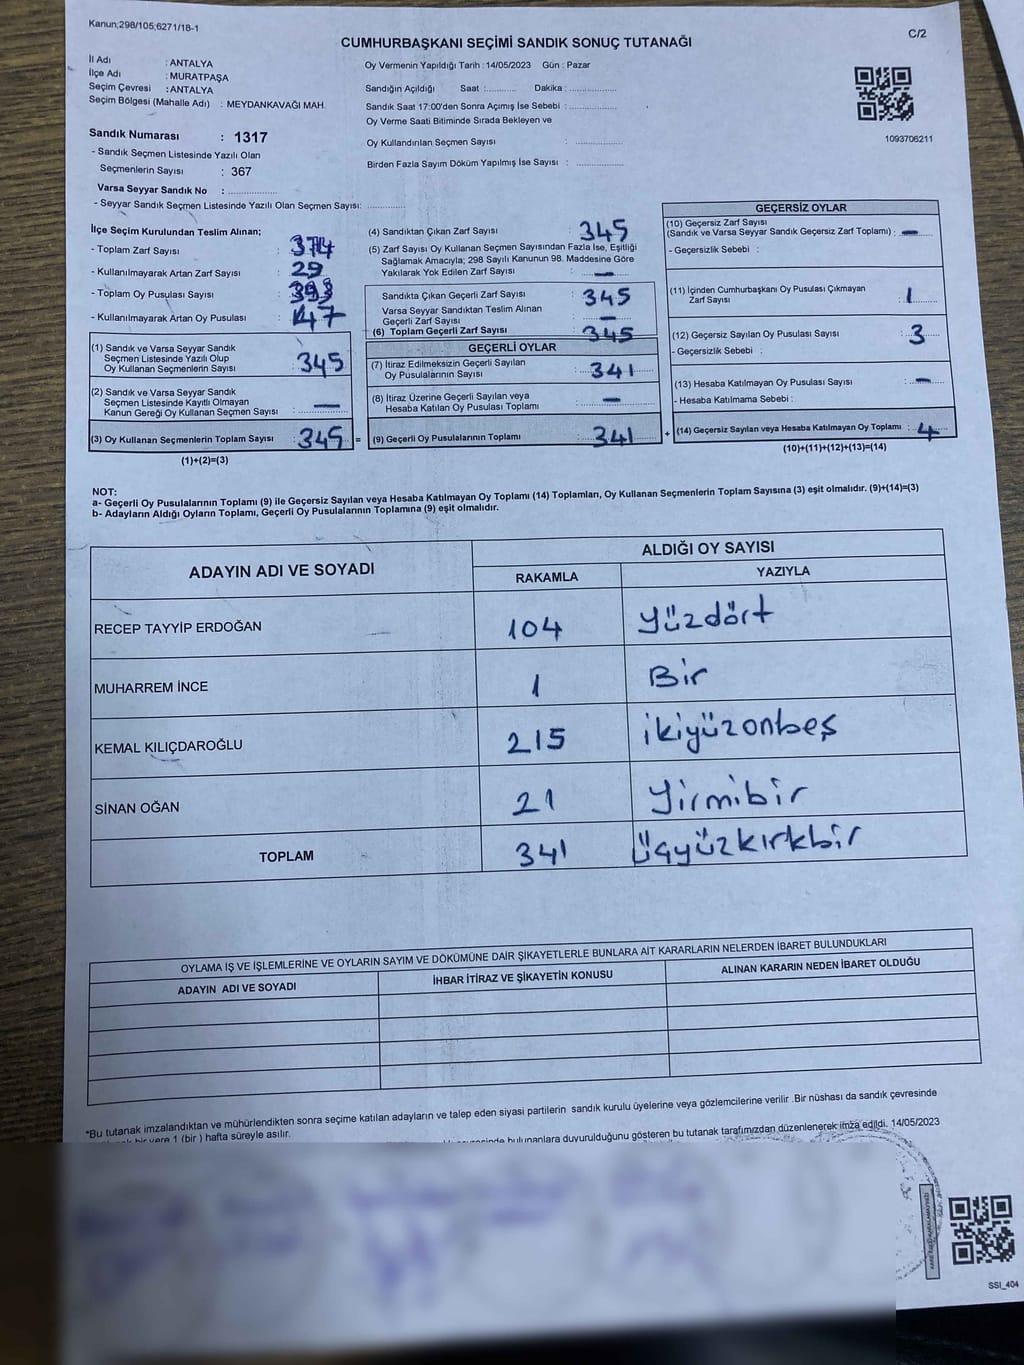 Kanun;298/105;6271/18-1
C/2
CUMHURBAŞKANI SEÇİMİ SANDIK SONUÇ TUTANAĞI
İl Adı : ANTALYA
İlçe Adı : MURATPAŞA
Seçim Çevresi : ANTALYA
Seçim Bölgesi (Mahalle Adı) : MEYDANKAVAĞI MAH.
Sandık Numarası : 1317
- Sandık Seçmen Listesinde Yazılı Olan
Seçmenlerin Sayısı : 367
Varsa Seyyar Sandık No : ................
- Seyyar Sandık Seçmen Listesinde Yazılı Olan Seçmen Sayısı: ............
Oy Vermenin Yapıldığı Tarih : 14/05/2023 Gün : Pazar
Sandığın Açıldığı Saat :.......... Dakika :................
Sandık Saat 17:00'den Sonra Açımış İse Sebebi : ................
Oy Verme Saati Bitiminde Sırada Bekleyen ve
Oy Kullandırılan Seçmen Sayısı : ................
Birden Fazla Sayım Döküm Yapılmış İse Sayısı : ................
1093706211
İlçe Seçim Kurulundan Teslim Alınan;
- Toplam Zarf Sayısı : 374
- Kullanılmayarak Artan Zarf Sayısı : 29
- Toplam Oy Pusulası Sayısı :
- Kullanılmayarak Artan Oy Pusulası : 47
(1) Sandık ve Varsa Seyyar Sandık
Seçmen Listesinde Yazılı Olup
Oy Kullanan Seçmenlerin Sayısı : 345
(2) Sandık ve Varsa Seyyar Sandık
Seçmen Listesinde Kayıtlı Olmayan
Kanun Gereği Oy Kullanan Seçmen Sayısı : —
(3) Oy Kullanan Seçmenlerin Toplam Sayısı : 345 =
(1)+(2)=(3)
(4) Sandıktan Çıkan Zarf Sayısı : 345
(5) Zarf Sayısı Oy Kullanan Seçmen Sayısından Fazla İse, Eşitliği
Sağlamak Amacıyla; 298 Sayılı Kanunun 98. Maddesine Göre
Yakılarak Yok Edilen Zarf Sayısı : —
Sandıkta Çıkan Geçerli Zarf Sayısı : 345
Varsa Seyyar Sandıktan Teslim Alınan
Geçerli Zarf Sayısı : —
(6) Toplam Geçerli Zarf Sayısı : 345
GEÇERLİ OYLAR
(7) İtiraz Edilmeksizin Geçerli Sayılan
Oy Pusulalarının Sayısı : 341
(8) İtiraz Üzerine Geçerli Sayılan veya
Hesaba Katılan Oy Pusulası Toplamı : —
(9) Geçerli Oy Pusulalarının Toplamı : 341 +
GEÇERSİZ OYLAR
(10) Geçersiz Zarf Sayısı
(Sandık ve Varsa Seyyar Sandık Geçersiz Zarf Toplamı) : —
- Geçersizlik Sebebi :
(11) İçinden Cumhurbaşkanı Oy Pusulası Çıkmayan
Zarf Sayısı : 1
(12) Geçersiz Sayılan Oy Pusulası Sayısı : 3
- Geçersizlik Sebebi :
(13) Hesaba Katılmayan Oy Pusulası Sayısı : —
- Hesaba Katılmama Sebebi :
(14) Geçersiz Sayılan veya Hesaba Katılmayan Oy Toplamı : 4
(10)+(11)+(12)+(13)=(14)
NOT:
a- Geçerli Oy Pusulalarının Toplamı (9) ile Geçersiz Sayılan veya Hesaba Katılmayan Oy Toplamı (14) Toplamları, Oy Kullanan Seçmenlerin Toplam Sayısına (3) eşit olmalıdır. (9)+(14)=(3)
b- Adayların Aldığı Oyların Toplamı, Geçerli Oy Pusulalarının Toplamına (9) eşit olmalıdır.
ADAYIN ADI VE SOYADI ALDIĞI OY SAYISI
RAKAMLA YAZIYLA
RECEP TAYYİP ERDOĞAN 104 Yüzdört
MUHARREM İNCE 1 Bir
KEMAL KILIÇDAROĞLU 215 ikiyüzonbeş
SİNAN OĞAN 21 Yirmibir
TOPLAM 341 Üçyüzkırkbir
OYLAMA İŞ VE İŞLEMLERİNE VE OYLARIN SAYIM VE DÖKÜMÜNE DAİR ŞİKAYETLERLE BUNLARA AİT KARARLARIN NELERDEN İBARET BULUNDUKLARI
ADAYIN ADI VE SOYADI İHBAR İTİRAZ VE ŞİKAYETİN KONUSU ALINAN KARARIN NEDEN İBARET OLDUĞU
*Bu tutanak imzalandıktan ve mühürlendikten sonra seçime katılan adayların ve talep eden siyasi partilerin sandık kurulu üyelerine veya gözlemcilerine verilir .Bir nüshası da sandık çevresinde
bir yere 1 (bir ) hafta süreyle asılır.
bulunanlara duyurulduğunu gösteren bu tutanak tarafımızdan düzenlenerek imza edildi. 14/05/2023
SSI_404